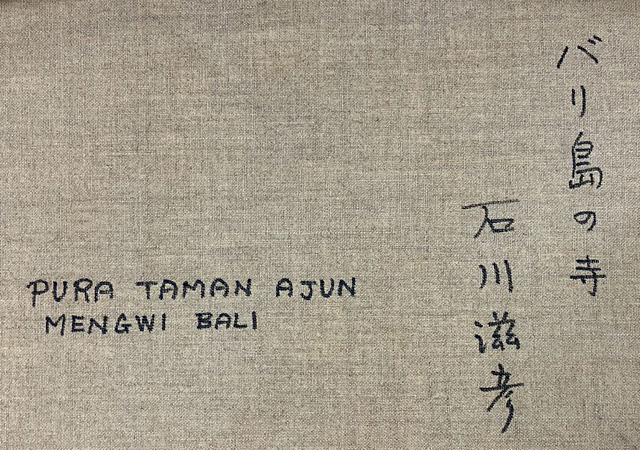 バリ島の寺
石川滋彦
PURA TAMAN AJUN
MENGWI BALI